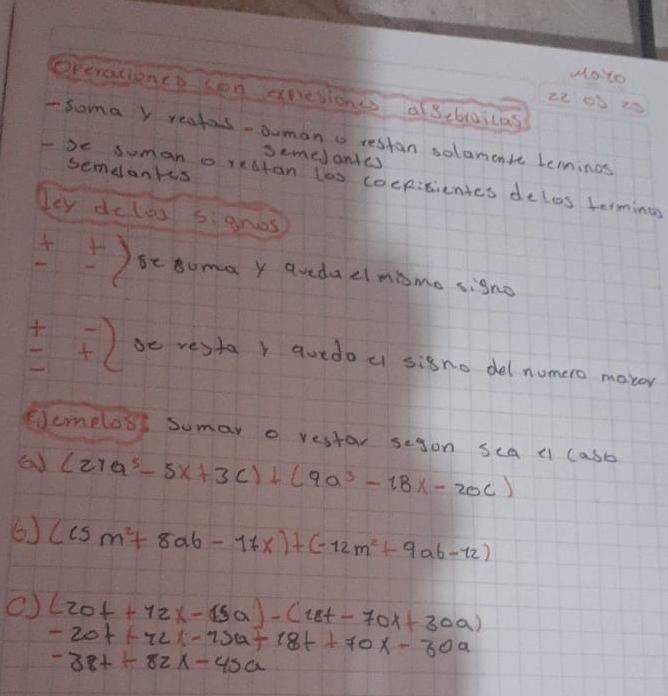 Mayo
22 05 25
Operaciones con expresiones algebraicas
- Suma y restas - suman o restan solamente teminos
semejantes
- se suman o restan los coefisientes de los terminos
semejantes
Ley de los signos
+ +
- - ) se suma y queda el mismo signo
+ -
- + ) se resta y quedo el signo del numero mayor
Ejemplos: Sumar o restar segon sea el caso
a) (21a³ - 5x + 3c) + (9a³ - 18x - 20c)
b) (15m² + 8ab - 11x) + (-12m² + 9ab - 12)
c) (20t + 12x - 15a) - (18t - 70x + 30a)
- 20t + 12x - 15a + 18t + 70x - 30a
- 38t + 82x - 45a